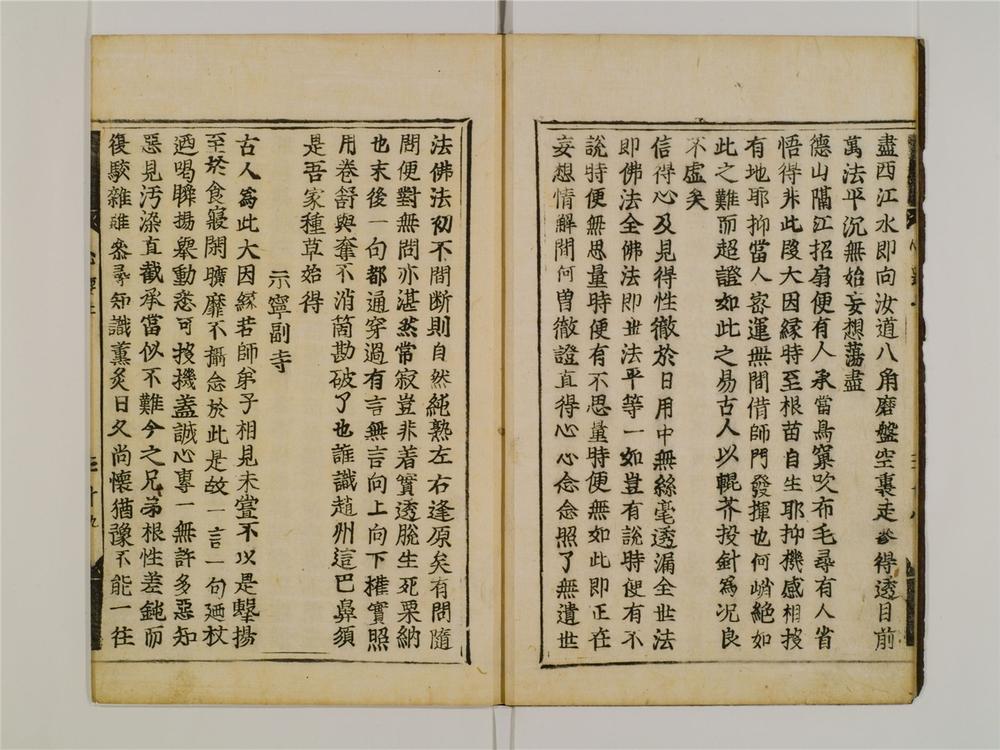 盡西江水即向汝道八角磨盤空裏走參得透目前
萬法平沉無始妄想蕩盡
德山隔江招扇便有人承當鳥窠吹布毛尋有人省
悟得非此段大因緣時至根苗自生耶抑機感相投
有地耶抑當人密運無間借師門發揮也何峭絕如
此之難而超證如此之易古人以輥芥投針爲况良
不虛矣
信得心及見得性徹於日用中無絲毫透漏全世法
即佛法全佛法即世法平等一如豈有說時便有不
說時便無思量時便有不思量時便無如此即正在
妄想情解間何曾徹證直得心心念念照了無遺世
法佛法初不間斷則自然純熟左右逢原矣有問隨
問便對無問亦湛然常寂豈非着實透脫生死要綱
也末後一句都通穿過有言無言向上向下權實照
用卷舒與奪不消箇勘破了也誰識趙州這巴鼻須
是吾家種草始得
示寧副寺
古人爲此大因緣若師弟子相見未嘗不以是擊揚
至於食寢閑曠靡不攝念於此是故一言一句廼杖
廼喝瞬揚舉動悉可投機蓋誠心專一無許多惡知
惡見汚染直截承當似不難今之兄弟根性差鈍而
復駮雜雖參尋知識薰炙日久尚懷猶豫不能一往